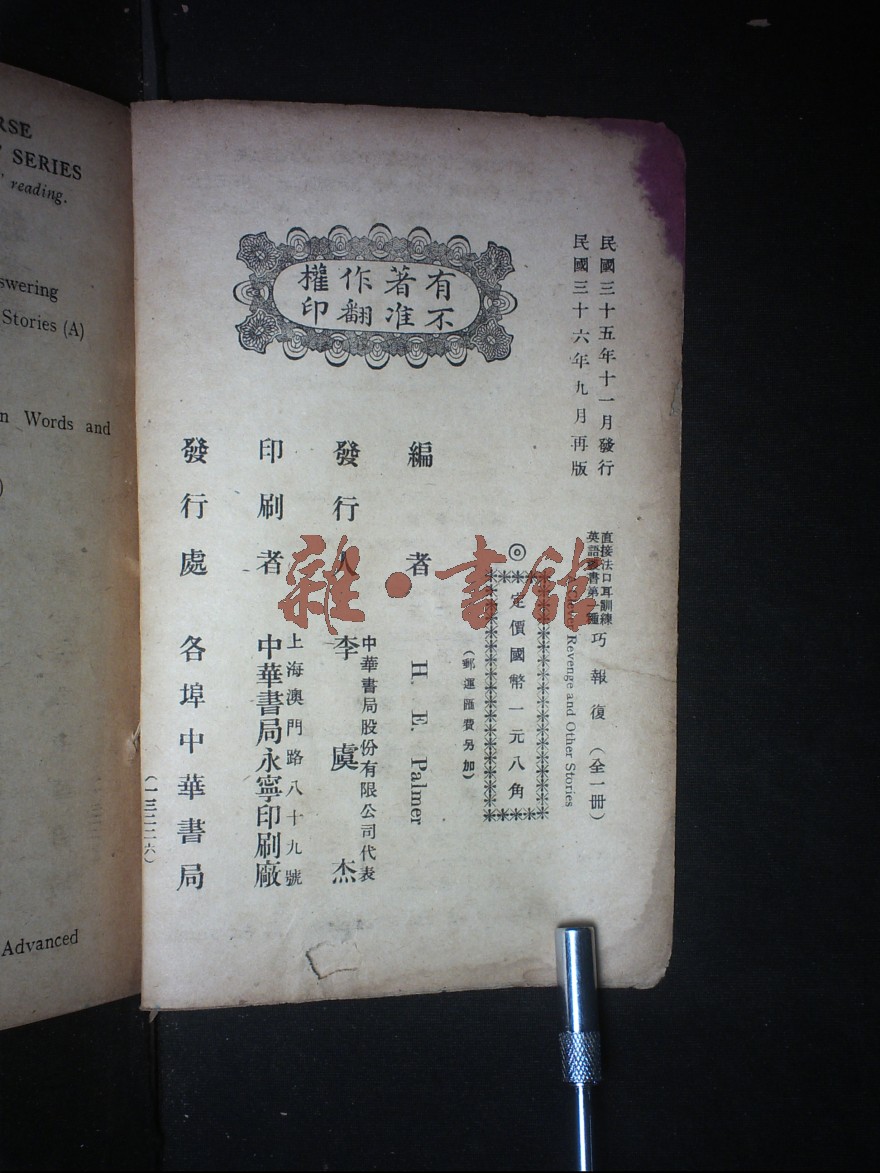 RSE
SERIES
reading.
swering
Stories (A)
n Words and
)
Advanced
民國三十五年十一月發行
民國三十六年九月再版
有著作權
不准翻印
直接法口耳訓練
英語 書第一種
巧報復（全一冊）
Revenge and Other Stories
◎定價國幣一元八角
（郵運匯費另加）
編者 H. E. Palmer
中華書局股份有限公司代表
發行人 李虞杰
上海澳門路八十九號
印刷者 中華書局永寧印刷廠
發行處 各埠中華書局
（一三二二六）
雜·書館